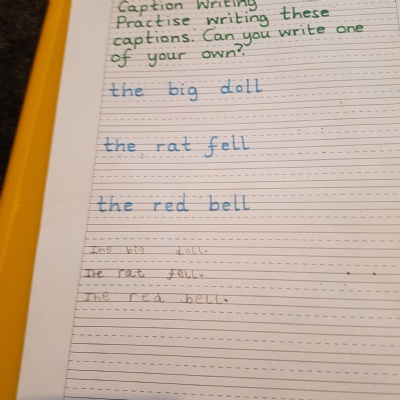 Caption Writing
Practise writing these
captions. Can you write one
of your own?
the big doll
the rat fell
the red bell
The big doll.
The rat fell.
The red bell.